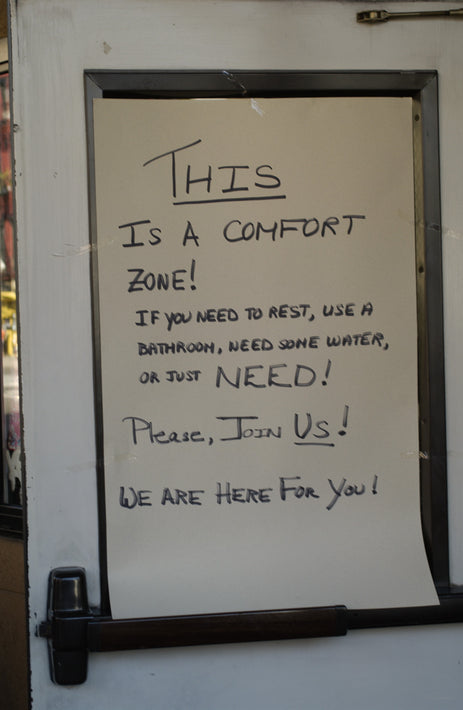 THIS
IS A COMFORT
ZONE!
IF YOU NEED TO REST, USE A
BATHROOM, NEED SOME WATER,
OR JUST NEED!
Please, JOIN US!
WE ARE HERE FOR YOU!